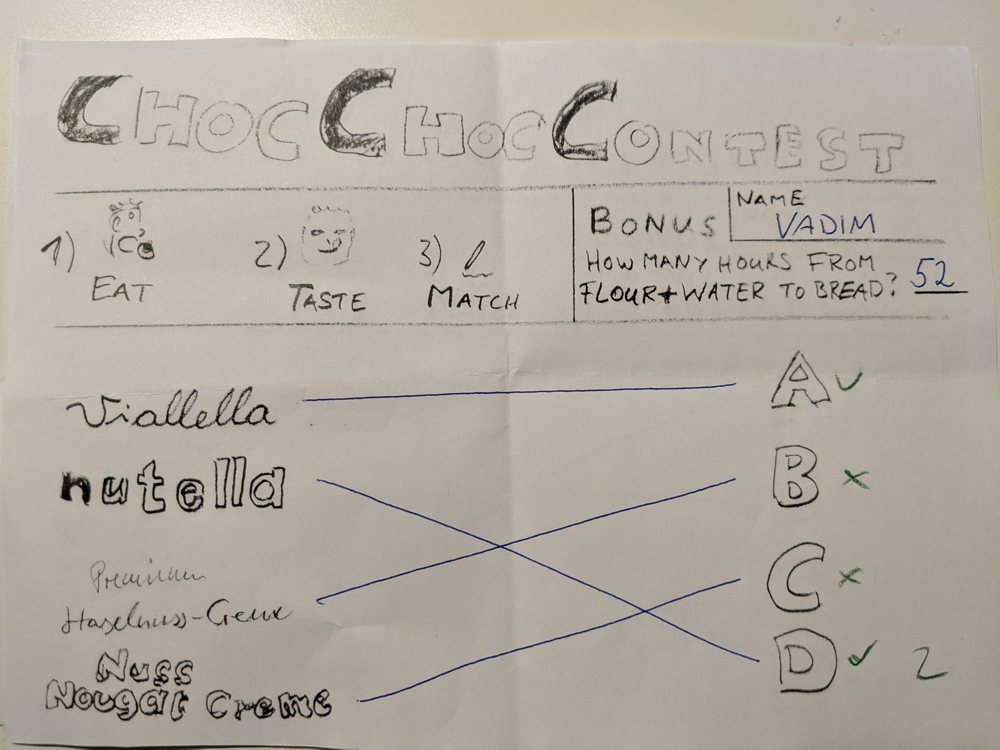 CHOC CHOC CONTEST
1) EAT
2) TASTE
3) MATCH
BONUS
NAME
VADIM
HOW MANY HOURS FROM
FLOUR + WATER TO BREAD? 52
Viallella
A ✓
nutella
B ×
Premium
Haselnuss-Creme
C ×
Nuss
Nougat Creme
D ✓ 2